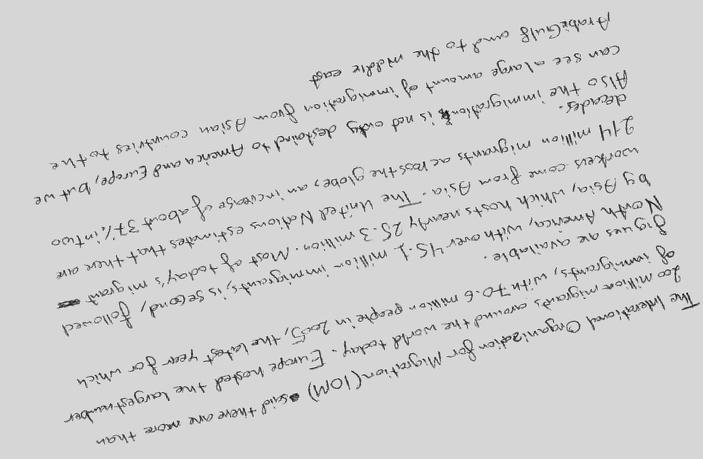 The Interational Organization for Migration (IOM) said there are more than
200 million migrants around the world today. Europe hosted the largest number
of immigrants, with 70.6 million people in 2005, the latest year for which
figues are available.
North America, with over 45.1 million immigrants, is second, followed
by Asia, which hosts nearly 25.3 million. Most of today's migrant
workers come from Asia. The United Nations estimates that there are
214 million migrants across the globe, an increase of about 37% in two
decades.
Also the immigration is not only destaind to America and Europe, but we
can see a large amount of immigration from Asian countries to the
ArabicGulf and to the middle east